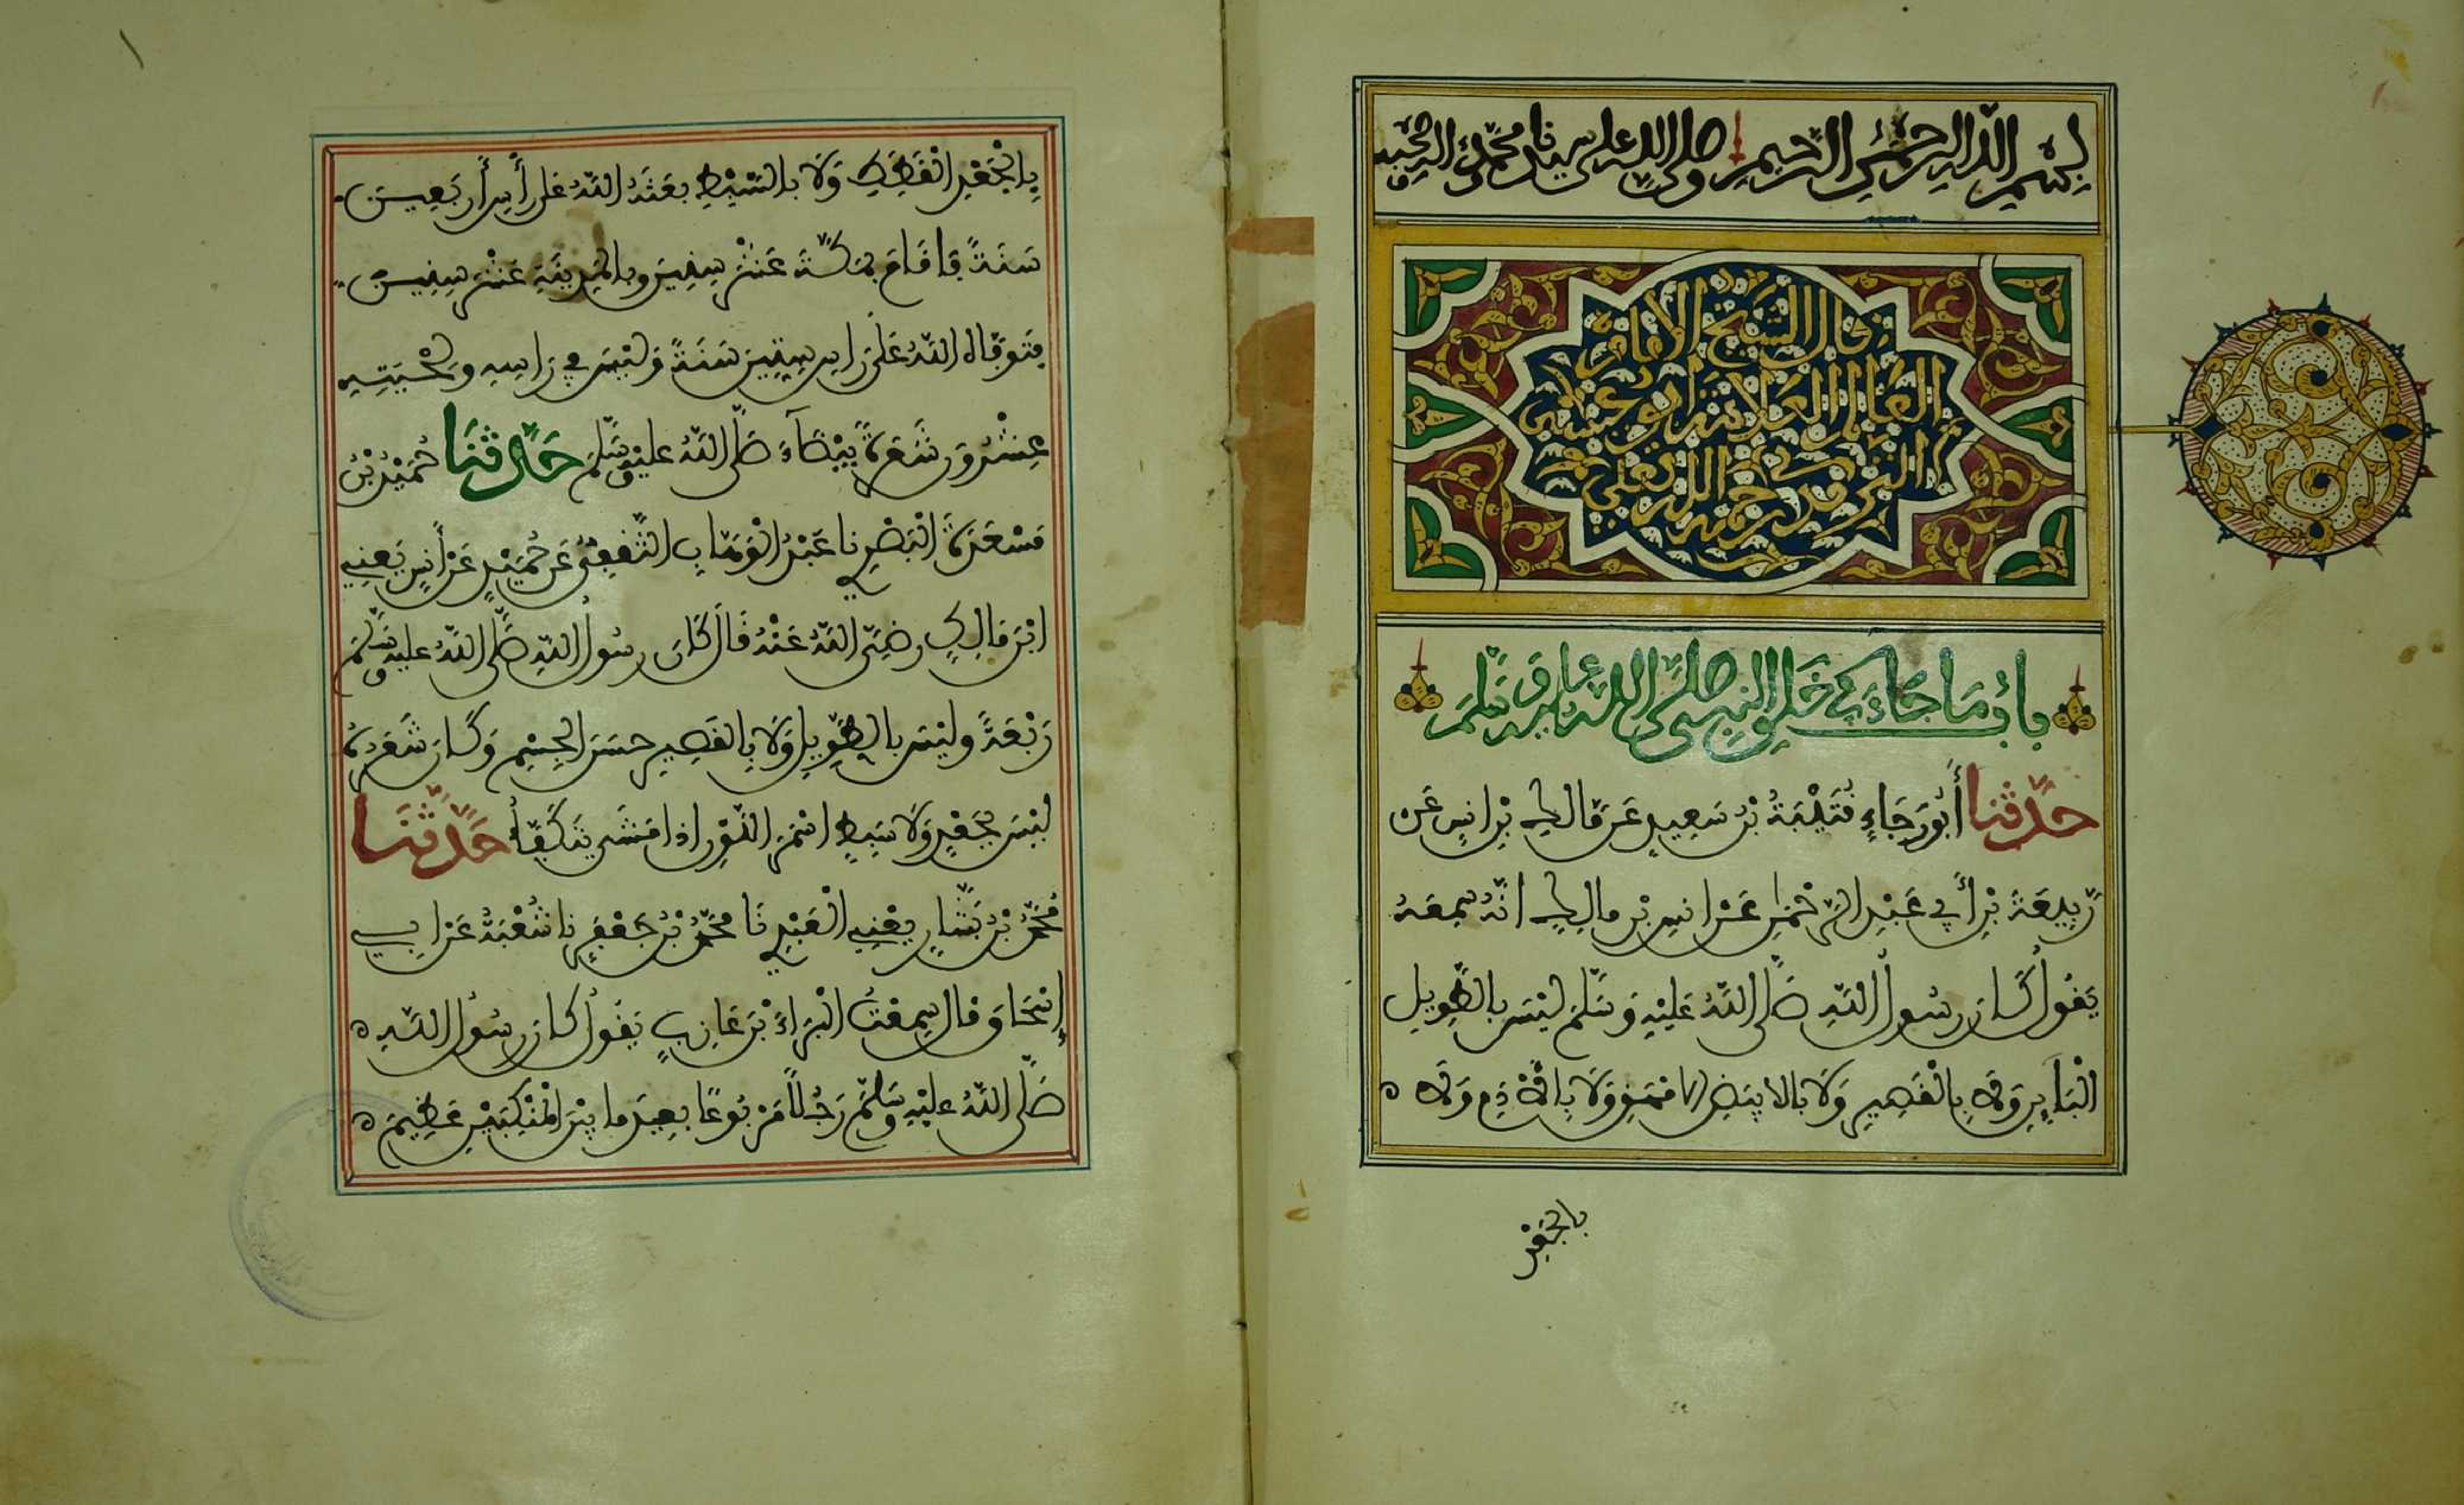 بِسْمِ اللهِ الرَّحْمٰنِ الرَّحِيمِ صلى الله على سيدنا محمد وءاله وصحبه
قال الشيخ الإمام
العالم العلامة أبو عيسى
الترمذي رحمه الله تعلى
بَابُ مَا جَاءَ فِي خَلْقِ النَّبِيِّ صَلَّى اللهُ عَلَيْهِ وَسَلَّمَ
حَدَّثَنَا أَبُو رَجَاءٍ قُتَيْبَةُ بْنُ سَعِيدٍ عَن مَّالِكِ بْنِ أنسٍ عَن
رَّبِيعَةَ بْنِ أَبِي عَبْدِ الرَّحْمٰنِ عَنْ أنسِ بْنِ مالِكٍ أنَّهُ سَمِعَهُ
يَقُولُ كَانَ رسُولُ اللَّهِ صَلَّى اللَّهُ عَلَيْهِ وَسَلَّمَ لَيْسَ بِالطَّوِيلِ
الْبَايِنِ وَلَا بِالْقَصِيرِ وَلَا بالابْيَضِ الامْهَقِ وَلَا بِالَادَمِ وَلَا
بالجَعْدِ
بِالْجَعْدِ الْقَطَطِ وَلَا بالسَّبِطِ بعَثَهُ اللَّهُ عَلَى رَأْسِ أَرْبَعِينَ
سَنَةً فَأقَامَ بمَكَّةَ عَشْرَ سِنِينَ وبالمَدِينَةِ عَشْرَ سِنِينَ
فتَوَفَّاهُ اللَّهُ عَلَى رَاسِ سِتِّينَ سَنَةً وَلَيْسَ فِي رَاسِهِ وَلِحْيَتِهِ
عِشْرُونَ شَعَرَةً بَيْضَآءَ صَلَّى اللَّهُ عليْهِ وسَلَّمَ حَدَّثَنَا حُمَيْدُ بْنُ
مَسْعَدَةَ الْبَصْرِي نا عَبْدُ الْوَهَّابِ الثَّقَفِيُّ عَن حُمَيْدٍ عَنْ أَنَسٍ يَعْنِي
ابْنَ مَالِكٍ رضِيَ اللَّهُ عَنْهُ قَالَ كَانَ رسُولُ اللَّهِ صَلَّى اللَّهُ عليهِ وسَلَّمَ
رَبْعَةً وليْسَ بالطَّوِيلِ وَلَا بِالقَصِيرِ حسَنَ الجِسْمِ وَكَانَ شَعَرُهُ
ليْسَ بجَعْدٍ وَلَا سَبِطٍ اسْمَرَ اللَّوْنِ اذا مَشَى يَتَكَفَّأُ حَدَّثَنَا
مُحَمَّدُ بْنُ بَشَّارٍ يعْنِي العَبْدِي نَا مُحَمَّدُ بْنُ جَعْفَرٍ نا شُعْبَةُ عَنْ ابِي
إِسْحَاقَ قالَ سَمِعْتُ الْبَرَاءَ بْنَ عَازِبٍ يَقُولُ كَانَ رسُولُ اللَّهِ
صَلَّى اللَّهُ عليْهِ وسَلَّمَ رَجُلًا مَرْبُوعًا بعِيدَ ما بيْنَ الْمَنْكِبَيْنِ عَظِيمَ